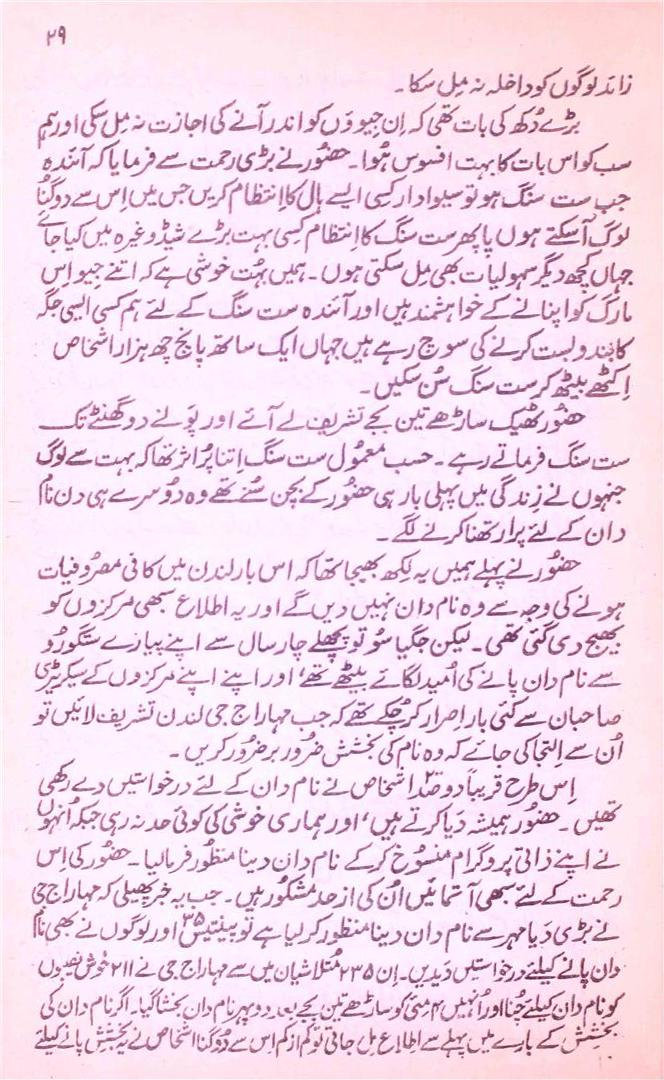 ۲۹
زائد لوگوں کو داخلہ نہ مِل سکا۔
بڑے دُکھ کی بات تھی کہ اِن جیووَں کو اندر آنے کی اجازت نہ مِل سکی اور ہم
سب کو اس بات کا بہت افسوس ہُوا۔ حضُور نے بڑی رحمت سے فرمایا کہ آئندہ
جب ست سنگ ہو تو سیوادار کسِی ایسے ہال کا اِنتظام کریں جس میں اِس سے دوگُنا
لوگ آسکتے ہوں یا پھر ست سنگ کا اِنتظام کسِی بہت بڑے شیڈ وغیرہ میں کیا جائے
جہاں کچھ دیگر سہولیات بھی مِل سکتی ہوں۔ ہمیں بہُت خوشی ہے کہ اتنے جیو اِس
مارگ کو اپنانے کے خواہشمند ہیں اور آئندہ ست سنگ کے لئے ہم کسی ایسی جگہ
کا بندوبست کرنے کی سوچ رہے ہیں جہاں ایک ساتھ پانچ چھ ہزار اشخاص
اِکٹھے بیٹھ کر ست سنگ سُن سکیں۔
حضُور ٹھیک ساڑھے تین بجے تشریف لے آئے اور پَونے دو گھنٹے تک
ست سنگ فرماتے رہے۔ حسب معمُول ست سنگ اِتنا پُر اثر تھا کہ بہت سے لوگ
جنہوں نے زِندگی میں پہلی بار ہی حضُور کے بچن سُنے تھے وہ دُوسرے ہی دن نام
دان کے لئے پرارتھنا کرنے لگے۔
حضُور نے پہلے ہمیں یہ لِکھ بھیجا تھا کہ اس بار لندن میں کافی مصرُوفیات
ہونے کی وجہ سے وہ نام دان نہیں دیں گے اور یہ اطلاع سبھی مرکزوں کو
بھیج دی گئی تھی۔ لیکن جگیاسُو تو پچھلے چار سال سے اپنے پیارے ستگورُو
سے نام دان پانے کی اُمید لگائے بیٹھے تھے، اور اپنے اپنے مرکزوں کے سیکریٹری
صاحبان سے کئی بار اِصرار کر چُکے تھے کہ جب مہاراج جی لندن تشریف لائیں تو
اُن سے اِلتجا کی جائے کہ وہ نام کی بخشش ضرُور بر ضرُور کریں۔
اِس طرح قریباً دو صد اشخاص نے نام دان کے لئے درخواستیں دے رکھی
تھیں۔ حضُور ہمیشہ دَیا کرتے ہیں، اور ہماری خوشی کی کوئی حد نہ رہی جبکہ اُنہوں
نے اپنے ذاتی پروگرام منسُوخ کرکے نام دان دینا منظُور فرمالیا۔ حضُور کی اِس
رحمت کے لئے سبھی آتمائیں اُن کی از حد مشکُور ہیں۔ جب یہ خبر پھیلی کہ مہاراج جی
نے بڑی دَیا مہر سے نام دان دینا منظُور کر لیا ہے تو پینتیس ۳۵ اور لوگوں نے بھی نام
دان پانے کیلئے درخواستیں دیدیں۔ اِن ۲۳۵ مُتلاشیان میں سے مہاراج جی نے ۲۱۱ خُوش نصیبوں
کو نام دان کیلئے چُنا اور اُنہیں ۴ مئی کو ساڑھے تین بجے بعد دوپہر نام دان بخشا گیا۔ اگر نام دان کی
بخشش کے بارے میں پہلے سے اطلاع مِل جاتی تو کم از کم اِس سے دُوگنا اشخاص نے یہ بخشِش پانے کیلئے